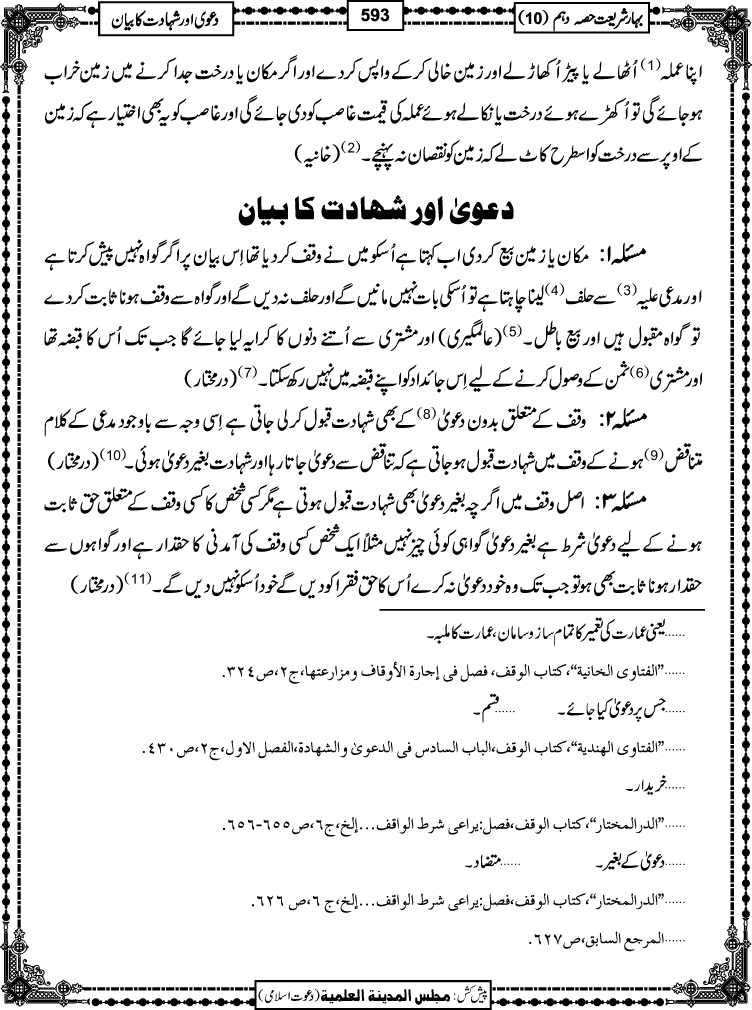 بہار شریعت حصہ دہم (10)
593
دعویٰ اور شہادت کا بیان
اپنا عملہ(1) اُٹھالے یا پیڑ اُکھاڑلے اور زمین خالی کرکے واپس کردے اور اگر مکان یا درخت جدا کرنے میں زمین خراب
ہوجائے گی تو اُکھڑے ہوئے درخت یا نکالے ہوئے عملہ کی قیمت غاصب کو دی جائے گی اور غاصب کو یہ بھی اختیار ہے کہ زمین
کے اوپر سے درخت کو اسطرح کاٹ لے کہ زمین کو نقصان نہ پہنچے۔(2) (خانیہ)
دعویٰ اور شہادت کا بیان
مسئلہ ۱: مکان یا زمین بیع کردی اب کہتا ہے اُسکو میں نے وقف کردیا تھا اِس بیان پر اگر گواہ نہیں پیش کرتا ہے
اور مدعی علیہ(3) سے حلف(4) لینا چاہتا ہے تو اُسکی بات نہیں مانیں گے اور حلف نہ دیں گے اور گواہ سے وقف ہونا ثابت کردے
تو گواہ مقبول ہیں اور بیع باطل۔(5) (عالمگیری) اور مشتری سے اُتنے دنوں کا کرایہ لیا جائے گا جب تک اُس کا قبضہ تھا
اور مشتری(6) ثمن کے وصول کرنے کے لیے اِس جائداد کو اپنے قبضہ میں نہیں رکھ سکتا۔(7) (درمختار)
مسئلہ ۲: وقف کے متعلق بدون دعویٰ(8) کے بھی شہادت قبول کرلی جاتی ہے اِسی وجہ سے باوجود مدعی کے کلام
متناقض(9) ہونے کے وقف میں شہادت قبول ہوجاتی ہے کہ تناقض سے دعویٰ جاتا رہا اور شہادت بغیر دعویٰ ہوئی۔(10) (درمختار)
مسئلہ ۳: اصل وقف میں اگرچہ بغیر دعویٰ بھی شہادت قبول ہوتی ہے مگر کسی شخص کا کسی وقف کے متعلق حق ثابت
ہونے کے لیے دعویٰ شرط ہے بغیر دعویٰ گواہی کوئی چیز نہیں مثلاً ایک شخص کسی وقف کی آمدنی کا حقدار ہے اور گواہوں سے
حقدار ہونا ثابت بھی ہو تو جب تک وہ خود دعویٰ نہ کرے اُس کا حق فقرا کو دیں گے خود اُسکو نہیں دیں گے۔(11) (درمختار)
......یعنی عمارت کی تعمیر کا تمام ساز و سامان، عمارت کا ملبہ۔
......”الفتاوى الخانية“، كتاب الوقف، فصل فى إجارة الأوقاف ومزارعتها، ج٢، ص٣٢٤.
......جس پر دعویٰ کیا جائے۔ ......قسم۔
......”الفتاوى الهندية“، كتاب الوقف، الباب السادس فى الدعوىٰ والشهادة، الفصل الاول، ج٢، ص٤٣٠.
......خریدار۔
......”الدرالمختار“، كتاب الوقف، فصل: يراعى شرط الواقف...إلخ، ج٦، ص٦٥٥-٦٥٦.
......دعویٰ کے بغیر۔ ......متضاد۔
......”الدرالمختار“، كتاب الوقف، فصل: يراعى شرط الواقف...إلخ، ج٦، ص٦٢٦.
......المرجع السابق، ص٦٢٧.
پیش کش: مجلس المدينة العلمية (دعوت اسلامی)